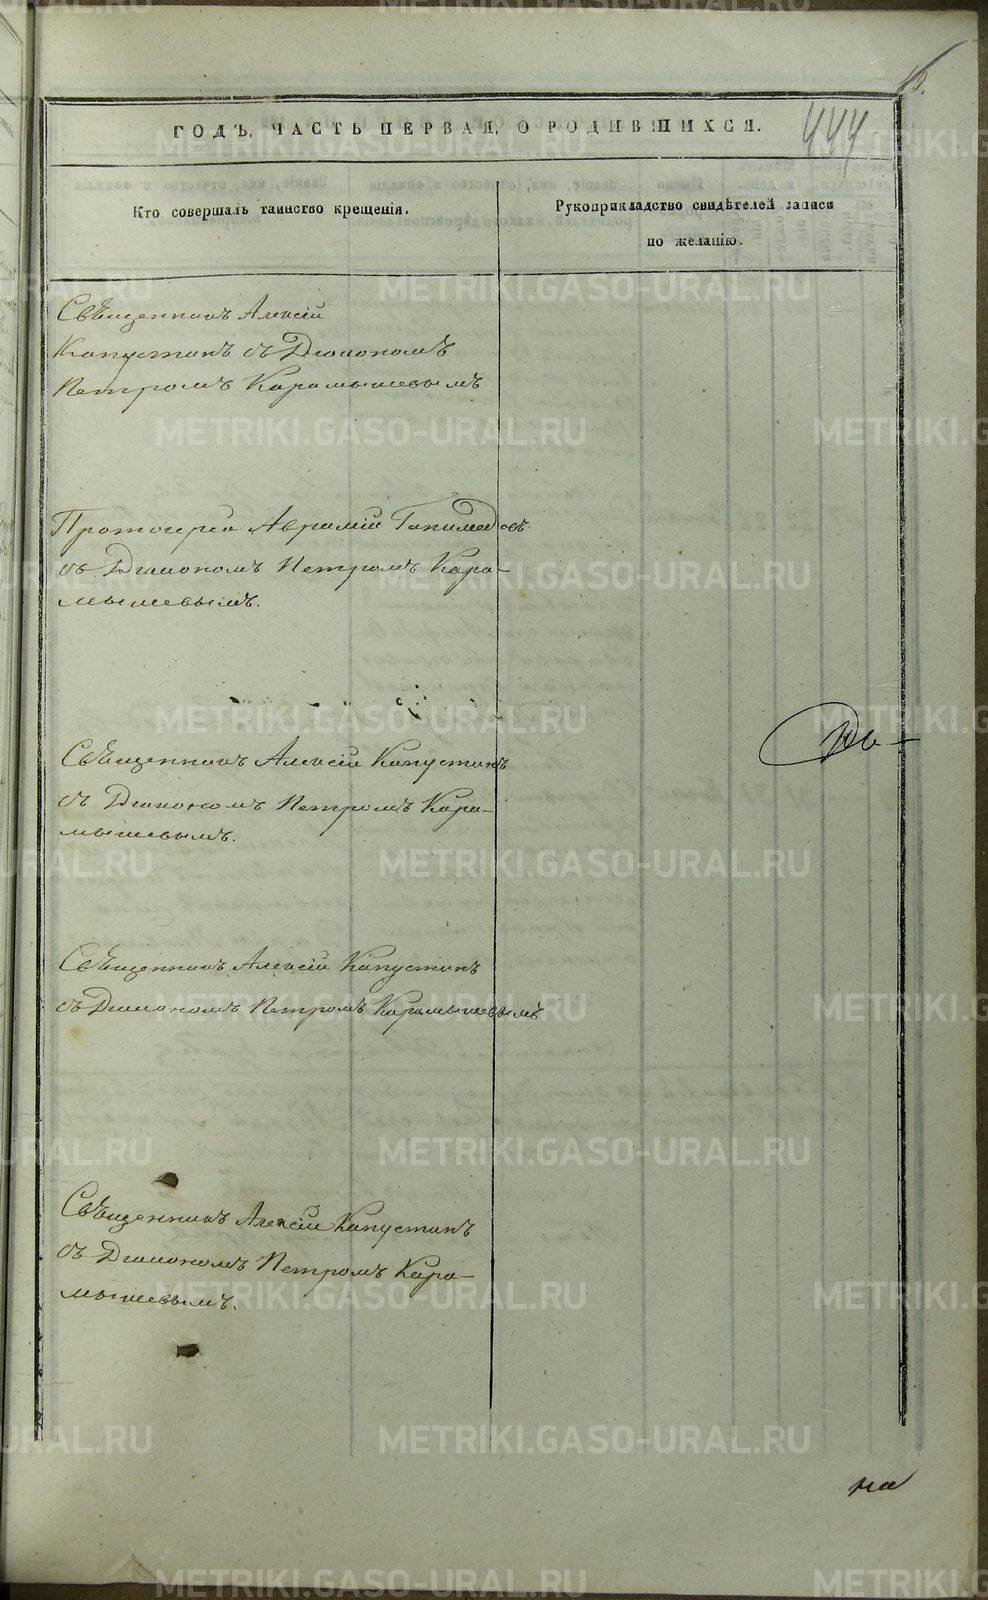 13.
444
ГОДЪ, ЧАСТЬ ПЕРВАЯ, О РОДИВШИХСЯ.
Кто совершалъ таинство крещенія.
Рукоприкладство свидѣтелей записи
по желанію.
Священникъ Алексій
Капустинъ съ Діакономъ
Петромъ Карамышевымъ
Протоіерей Аврамій
съ Діакономъ Петромъ Кара-
мышевымъ.
Священникъ Алексій Капустинъ
съ Діакономъ Петромъ Кара-
мышевымъ.
Священникъ Алексій Капустинъ
съ Діакономъ Петромъ Карамышевымъ
Священникъ Алексій Капустинъ
съ Діакономъ Петромъ Кара-
мышевымъ.
METRIKI.GASO-URAL.RU